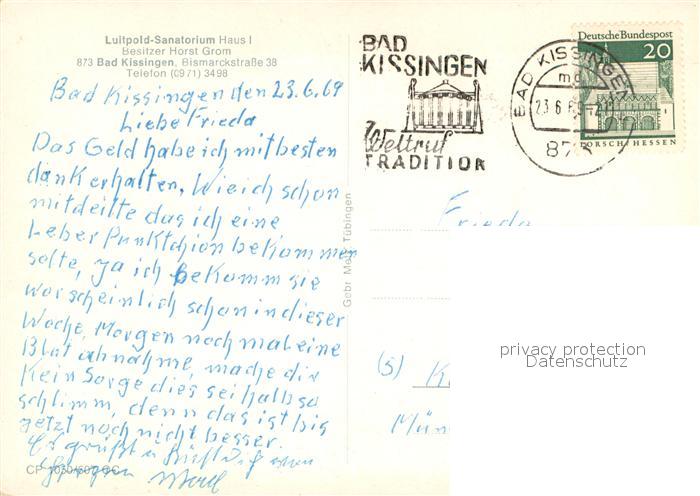 Luitpold-Sanatorium Haus I
Besitzer Horst Grom
873 Bad Kissingen, Bismarckstraße 38
Telefon (0971) 3498
Bad Kissingen den 23.6.69
Liebe Frieda
Das Geld habe ich mit besten
dank erhalten, Wie ich schon
mitdeilte das ich eine
Leber Punktchion bekommen
solte, ja ich bekomm sie
warscheinlich schon in dieser
Woche, Morgen noch mal eine
Blut abnahme, mache dir
Kein Sorge dies sei halb so
schlimm, denn das ist bis
jetzt noch nicht besser.
Es grüßt u küßt dich
CP
Gebr. Metz Tübingen
BAD
KISSINGEN
Weltruf
TRADITION
BAD KISSINGEN
23.6.69
873
Deutsche Bundespost
20
LORSCH/HESSEN
Frieda
(5) K
Mün
privacy protection
Datenschutz